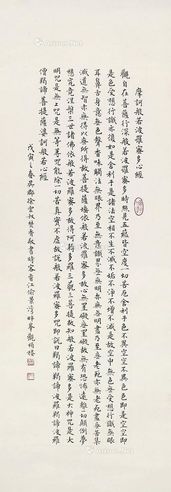 摩訶般若波羅蜜多心經
觀自在菩薩行深般若波羅蜜多時照見五蘊皆空度一切苦厄舍利子色不異空空不異色色即是空空即
是色受想行識亦復如是舍利子是諸法空相不生不滅不垢不淨不增不減是故空中無色無受想行識無眼
耳鼻舌身意無色聲香味觸法無眼界乃至無意識界無無明亦無無明盡乃至無老死亦無老死盡無苦集
滅道無智亦無得以無所得故菩提薩埵依般若波羅蜜多故心無罣礙無罣礙故無有恐怖遠離一切顛倒夢
想究竟涅槃三世諸佛依般若波羅蜜多故得阿耨多羅三藐三菩提故知般若波羅蜜多是大神咒是大
明咒是無上咒是無等等咒能除一切苦真實不虛故說般若波羅蜜多咒即說咒曰揭諦揭諦波羅揭諦波羅
僧揭諦菩提薩婆訶般若心經
戊寅之春吳郡徐雲叔熏香敬書時客香江